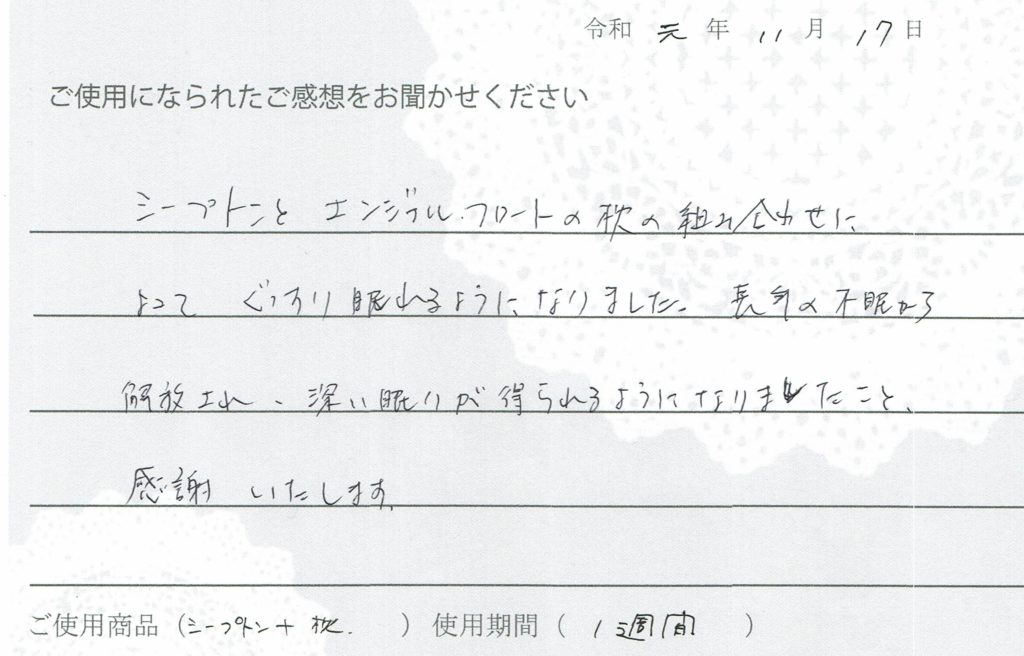 令和 元 年 11 月 17 日
ご使用になられたご感想をお聞かせください
シープトンと エンジェル.フロートの枕の組み合わせに
よって ぐっすり眠れるようになりました。長年の不眠から
解放され、深い眠りが得られるようになりましたこと、
感謝 いたします。
ご使用商品（シープトン＋ 枕. ） 使用期間（ 1週間 ）